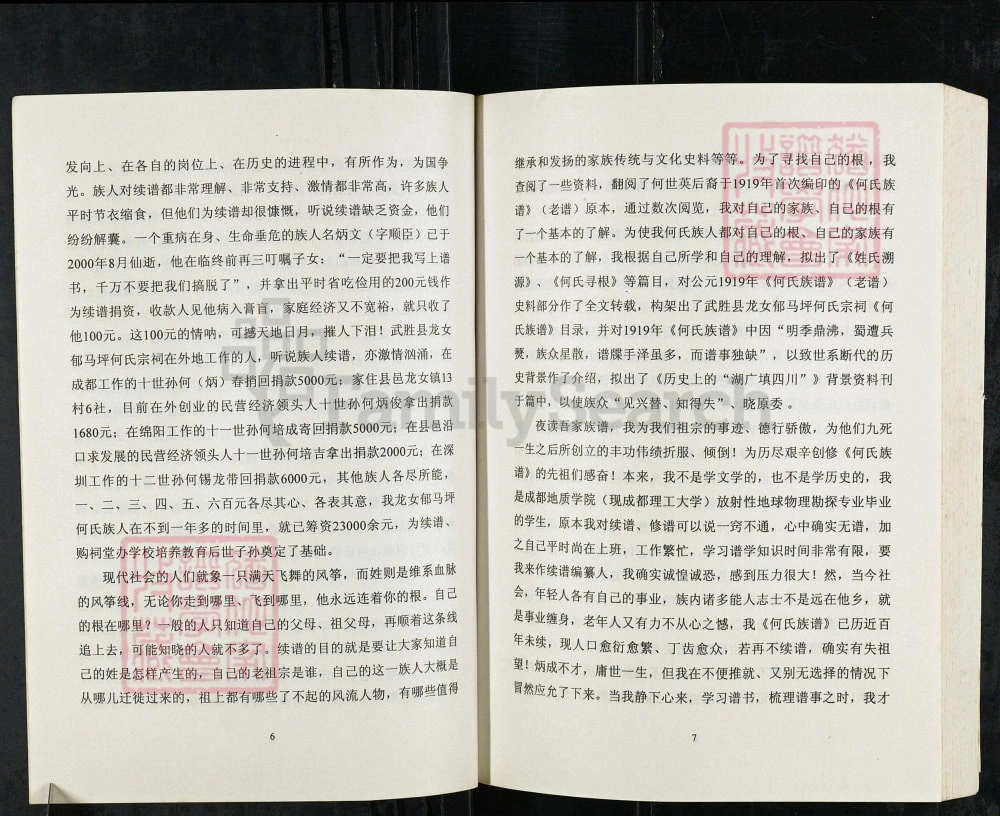 发向上、在各自的岗位上、在历史的进程中，有所作为，为国争
光。族人对续谱都非常理解、非常支持、激情都非常高，许多族人
平时节衣缩食，但他们为续谱却很慷慨，听说续谱缺乏资金，他们
纷纷解囊。一个重病在身、生命垂危的族人名炳文（字顺臣）已于
2000年8月仙逝，他在临终前再三叮嘱子女：“一定要把我写上谱
书，千万不要把我们搞脱了”，并拿出平时省吃俭用的200元钱作
为续谱捐资，收款人见他病入膏肓，家庭经济又不宽裕，就只收了
他100元。这100元的情呐，可撼天地日月，摧人下泪！武胜县龙女
郁马坪何氏宗祠在外地工作的人，听说族人续谱，亦激情汹涌，在
成都工作的十世孙何（炳）春捎回捐款5000元；家住县邑龙女镇13
村6社，目前在外创业的民营经济领头人十世孙何炳俊拿出捐款
1680元；在绵阳工作的十一世孙何培成寄回捐款5000元；在县邑沿
口求发展的民营经济领头人十一世孙何培吉拿出捐款2000元；在深
圳工作的十二世孙何锡龙带回捐款6000元，其他族人各尽所能，
一、二、三、四、五、六百元各尽其心、各表其意，我龙女郁马坪
何氏族人在不到一年多的时间里，就已筹资23000余元，为续谱、
购祠堂办学校培养教育后世子孙奠定了基础。
现代社会的人们就象一只满天飞舞的风筝，而姓则是维系血脉
的风筝线，无论你走到哪里、飞到哪里，他永远连着你的根。自己
的根在哪里？一般的人只知道自己的父母、祖父母，再顺着这条线
追上去，可能知晓的人就不多了。续谱的目的就是要让大家知道自
己的姓是怎样产生的，自己的老祖宗是谁，自己的这一族人大概是
从哪儿迁徙过来的，祖上都有哪些了不起的风流人物，有哪些值得
6
继承和发扬的家族传统与文化史料等等。为了寻找自己的根，我
查阅了一些资料，翻阅了何世英后裔于1919年首次编印的《何氏族
谱》（老谱）原本，通过数次阅览，我对自己的家族、自己的根有
了一个基本的了解。为使我何氏族人都对自己的根、自己的家族有
一个基本的了解，我根据自己所学和自己的理解，拟出了《姓氏溯
源》、《何氏寻根》等篇目，对公元1919年《何氏族谱》（老谱）
史料部分作了全文转载，构架出了武胜县龙女郁马坪何氏宗祠《何
氏族谱》目录，并对1919年《何氏族谱》中因“明季鼎沸，蜀遭兵
燹，族众星散，谱牒手泽虽多，而谱事独缺”，以致世系断代的历
史背景作了介绍，拟出了《历史上的“湖广填四川”》背景资料刊
于篇中，以使族众“见兴替、知得失”、晓原委 。
夜读吾家族谱，我为我们祖宗的事迹、德行骄傲，为他们九死
一生之后所创立的丰功伟绩折服、倾倒！为历尽艰辛创修《何氏族
谱》的先祖们感奋！本来，我不是学文学的，也不是学历史的，我
是成都地质学院（现成都理工大学）放射性地球物理勘探专业毕业
的学生，原本我对续谱、修谱可以说一窍不通，心中确实无谱，加
之自己平时尚在上班，工作繁忙，学习谱学知识时间非常有限，要
我来作续谱编纂人，我确实诚惶诚恐，感到压力很大！然，当今社
会，年轻人各有自己的事业，族内诸多能人志士不是远在他乡，就
是事业缠身，老年人又有力不从心之憾，我《何氏族谱》已历近百
年未续，现人口愈衍愈繁、丁齿愈众，若再不续谱，确实有失祖
望！炳成不才，庸世一生，但我在不便推就、又别无选择的情况下
冒然应允了下来。当我静下心来，学习谱书，梳理谱事之时，我才
7
FamilySearch